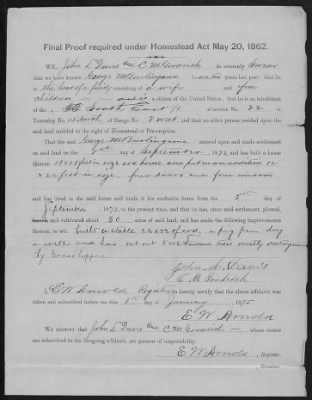 Final Proof required under Homestead Act May 20, 1862.
WE, John L Davis and C M Goodrich do solemnly swear
that we have known George M Burlingame for years last past; that he
is the head of a family consisting of a wife and four
children and is a citizen of the United States; that he is an inhabitant
of the South East ¼ of section No. 22 in
Township No. North of Range No. 8 West and that no other person resided upon the
said land entitled to the right of Homestead or Pre-emption.
That the said George M Burlingame entered upon and made settlement
on said land on the day of September, 1872, and has built a house
thereon
feet in size four doors and four windows
and has lived in the said house and made it his exclusive home from the 5th day of
September 1872, to the present time, and that he has, since said settlement, plowed,
and cultivated about 30 acres of said land, and has made the following improvements
thereon, to wit: built a stable of sod, a pig pen dug
a well and has set out
by Grasshoppers
John L. Davis
C. M. Goodrich
I, E W Arnold Register do hereby certify that the above affidavit was
taken and subscribed before me this day of January 1875
E W Arnold
WE CERTIFY that John L Davis and C M Goodrich whose names
are subscribed to the foregoing affidavit, are persons of respectability.
E W Arnold, Register.
Receiver.